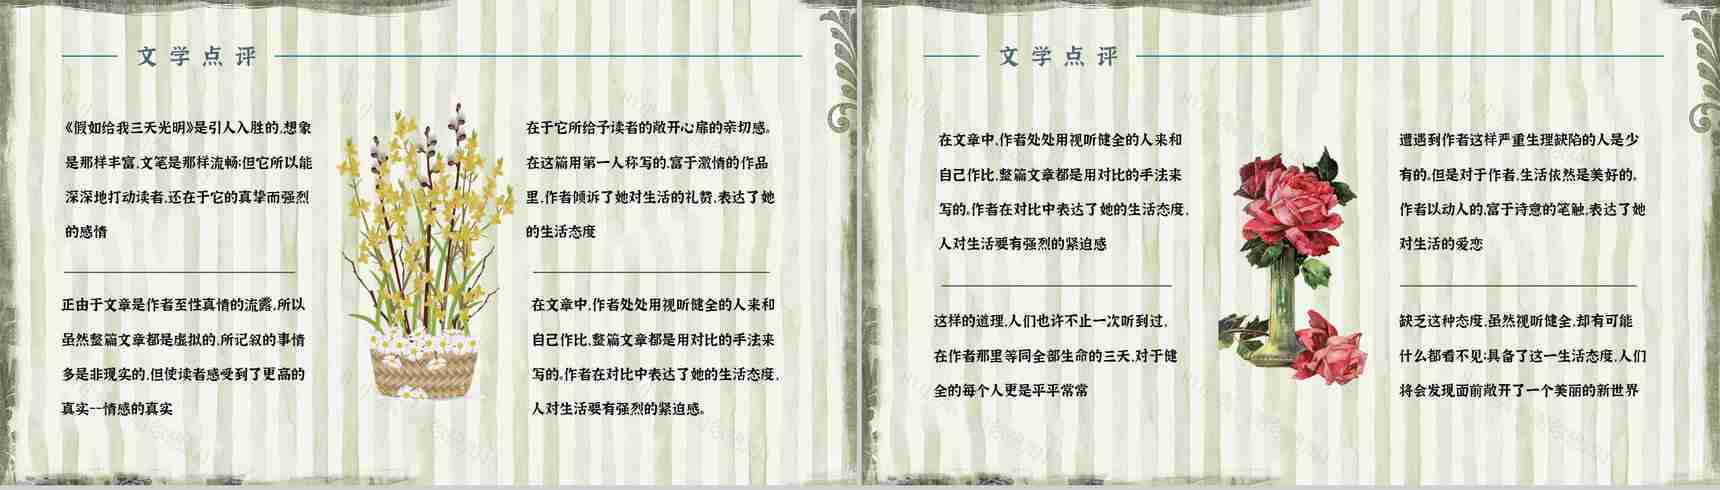 文学点评
《假如给我三天光明》是引人入胜的,想象
是那样丰富,文笔是那样流畅;但它所以能
深深地打动读者,还在于它的真挚而强烈
的感情
正由于文章是作者至性真情的流露,所以
虽然整篇文章都是虚拟的,所记叙的事情
多是非现实的,但使读者感受到了更高的
真实--情感的真实
在于它所给予读者的敞开心扉的亲切感。
在这篇用第一人称写的,富于激情的作品
里,作者倾诉了她对生活的礼赞,表达了她
的生活态度
在文章中,作者处处用视听健全的人来和
自己作比,整篇文章都是用对比的手法来
写的。作者在对比中表达了她的生活态度,
人对生活要有强烈的紧迫感。
文学点评
在文章中,作者处处用视听健全的人来和
自己作比,整篇文章都是用对比的手法来
写的。作者在对比中表达了她的生活态度,
人对生活要有强烈的紧迫感
这样的道理,人们也许不止一次听到过,
在作者那里等同全部生命的三天,对于健
全的每个人更是平平常常
遭遇到作者这样严重生理缺陷的人是少
有的,但是对于作者,生活依然是美好的。
作者以动人的,富于诗意的笔触,表达了她
对生活的爱恋
缺乏这种态度,虽然视听健全,却有可能
什么都看不见;具备了这一生活态度,人们
将会发现面前敞开了一个美丽的新世界